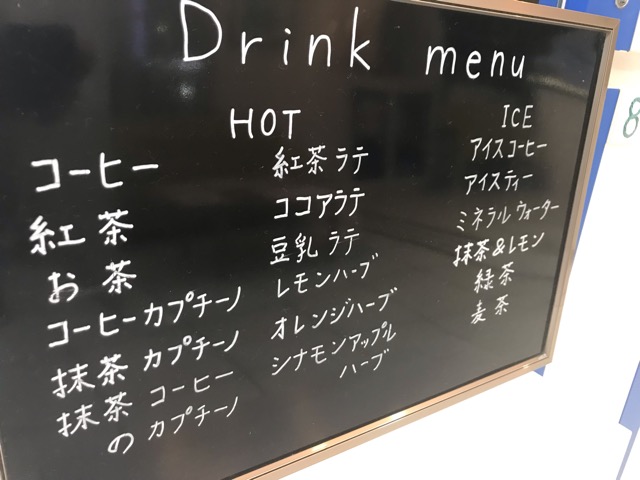 Drink menu
HOT
コーヒー
紅茶
お茶
コーヒーカプチーノ
抹茶 カプチーノ
抹茶 コーヒー
の カプチーノ
紅茶ラテ
ココアラテ
豆乳ラテ
レモンハーブ
オレンジハーブ
シナモンアップル
ハーブ
ICE
アイスコーヒー
アイスティー
ミネラルウォーター
抹茶&レモン
緑茶
麦茶
8